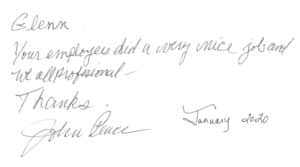 Glenn
Your employees did a very nice job and
all profesional —
Thanks.
John
January 2020